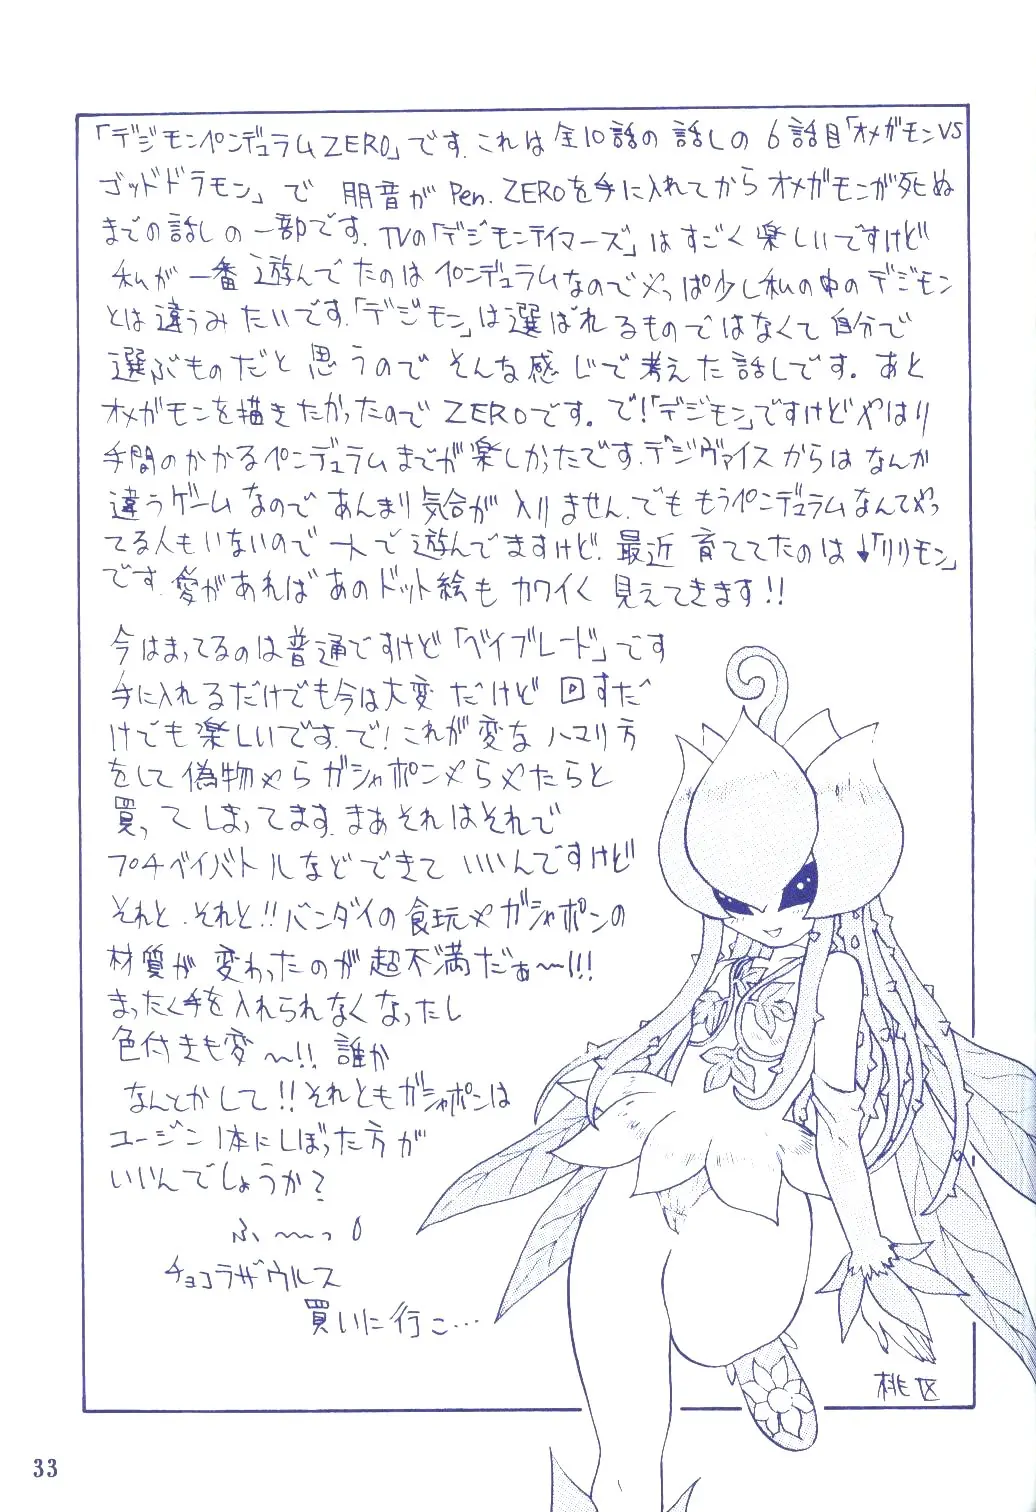 「デジモンペンデュラムZERO」です。これは全10話の話しの6話目「オメガモンVS
ゴッドドラモン」で 朋音がPen.ZEROを手に入れてからオメガモンが死ぬ
までの話しの一部です。TVの「デジモンテイマーズ」はすごく楽しいですけど
私が一番遊んでたのはペンデュラムなのでやっぱ少し私の中のデジモン
とは違うみたいです。「デジモン」は選ばれるものではなくて自分で
選ぶものだと思うのでそんな感じで考えた話しです。あと
オメガモンを描きたかったのでZEROです。で!「デジモン」ですけどやはり
手間のかかるペンデュラムまでが楽しかったです。デジヴァイスからはなんか
違うゲームなのであんまり気合が入りません。でももうペンデュラムなんてやっ
てる人もいないので一人で遊んでますけど。最近育ててたのは↓「リリモン」
です。愛があればあのドット絵もカワイく見えてきます!!
今はまってるのは普通ですけど「ベイブレード」です
手に入れるだけでも今は大変だけど回すだ
けでも楽しいです。で!これが変なハマり方
をして偽物やらガシャポンやらやたらと
買ってしまってます。まあそれはそれで
プチベイバトルなどできていいんですけど
それと、それと!!バンダイの食玩やガシャポンの
材質が変わったのが超不満だぁ〜!!!
まったく手を入れられなくなったし
色付きも変〜!!誰か
なんとかして!!それともガシャポンは
ユージン1本にしぼった方が
いいんでしょうか?
ふ〜っ
チョコラザウルス
買いに行こ…
桃区
33